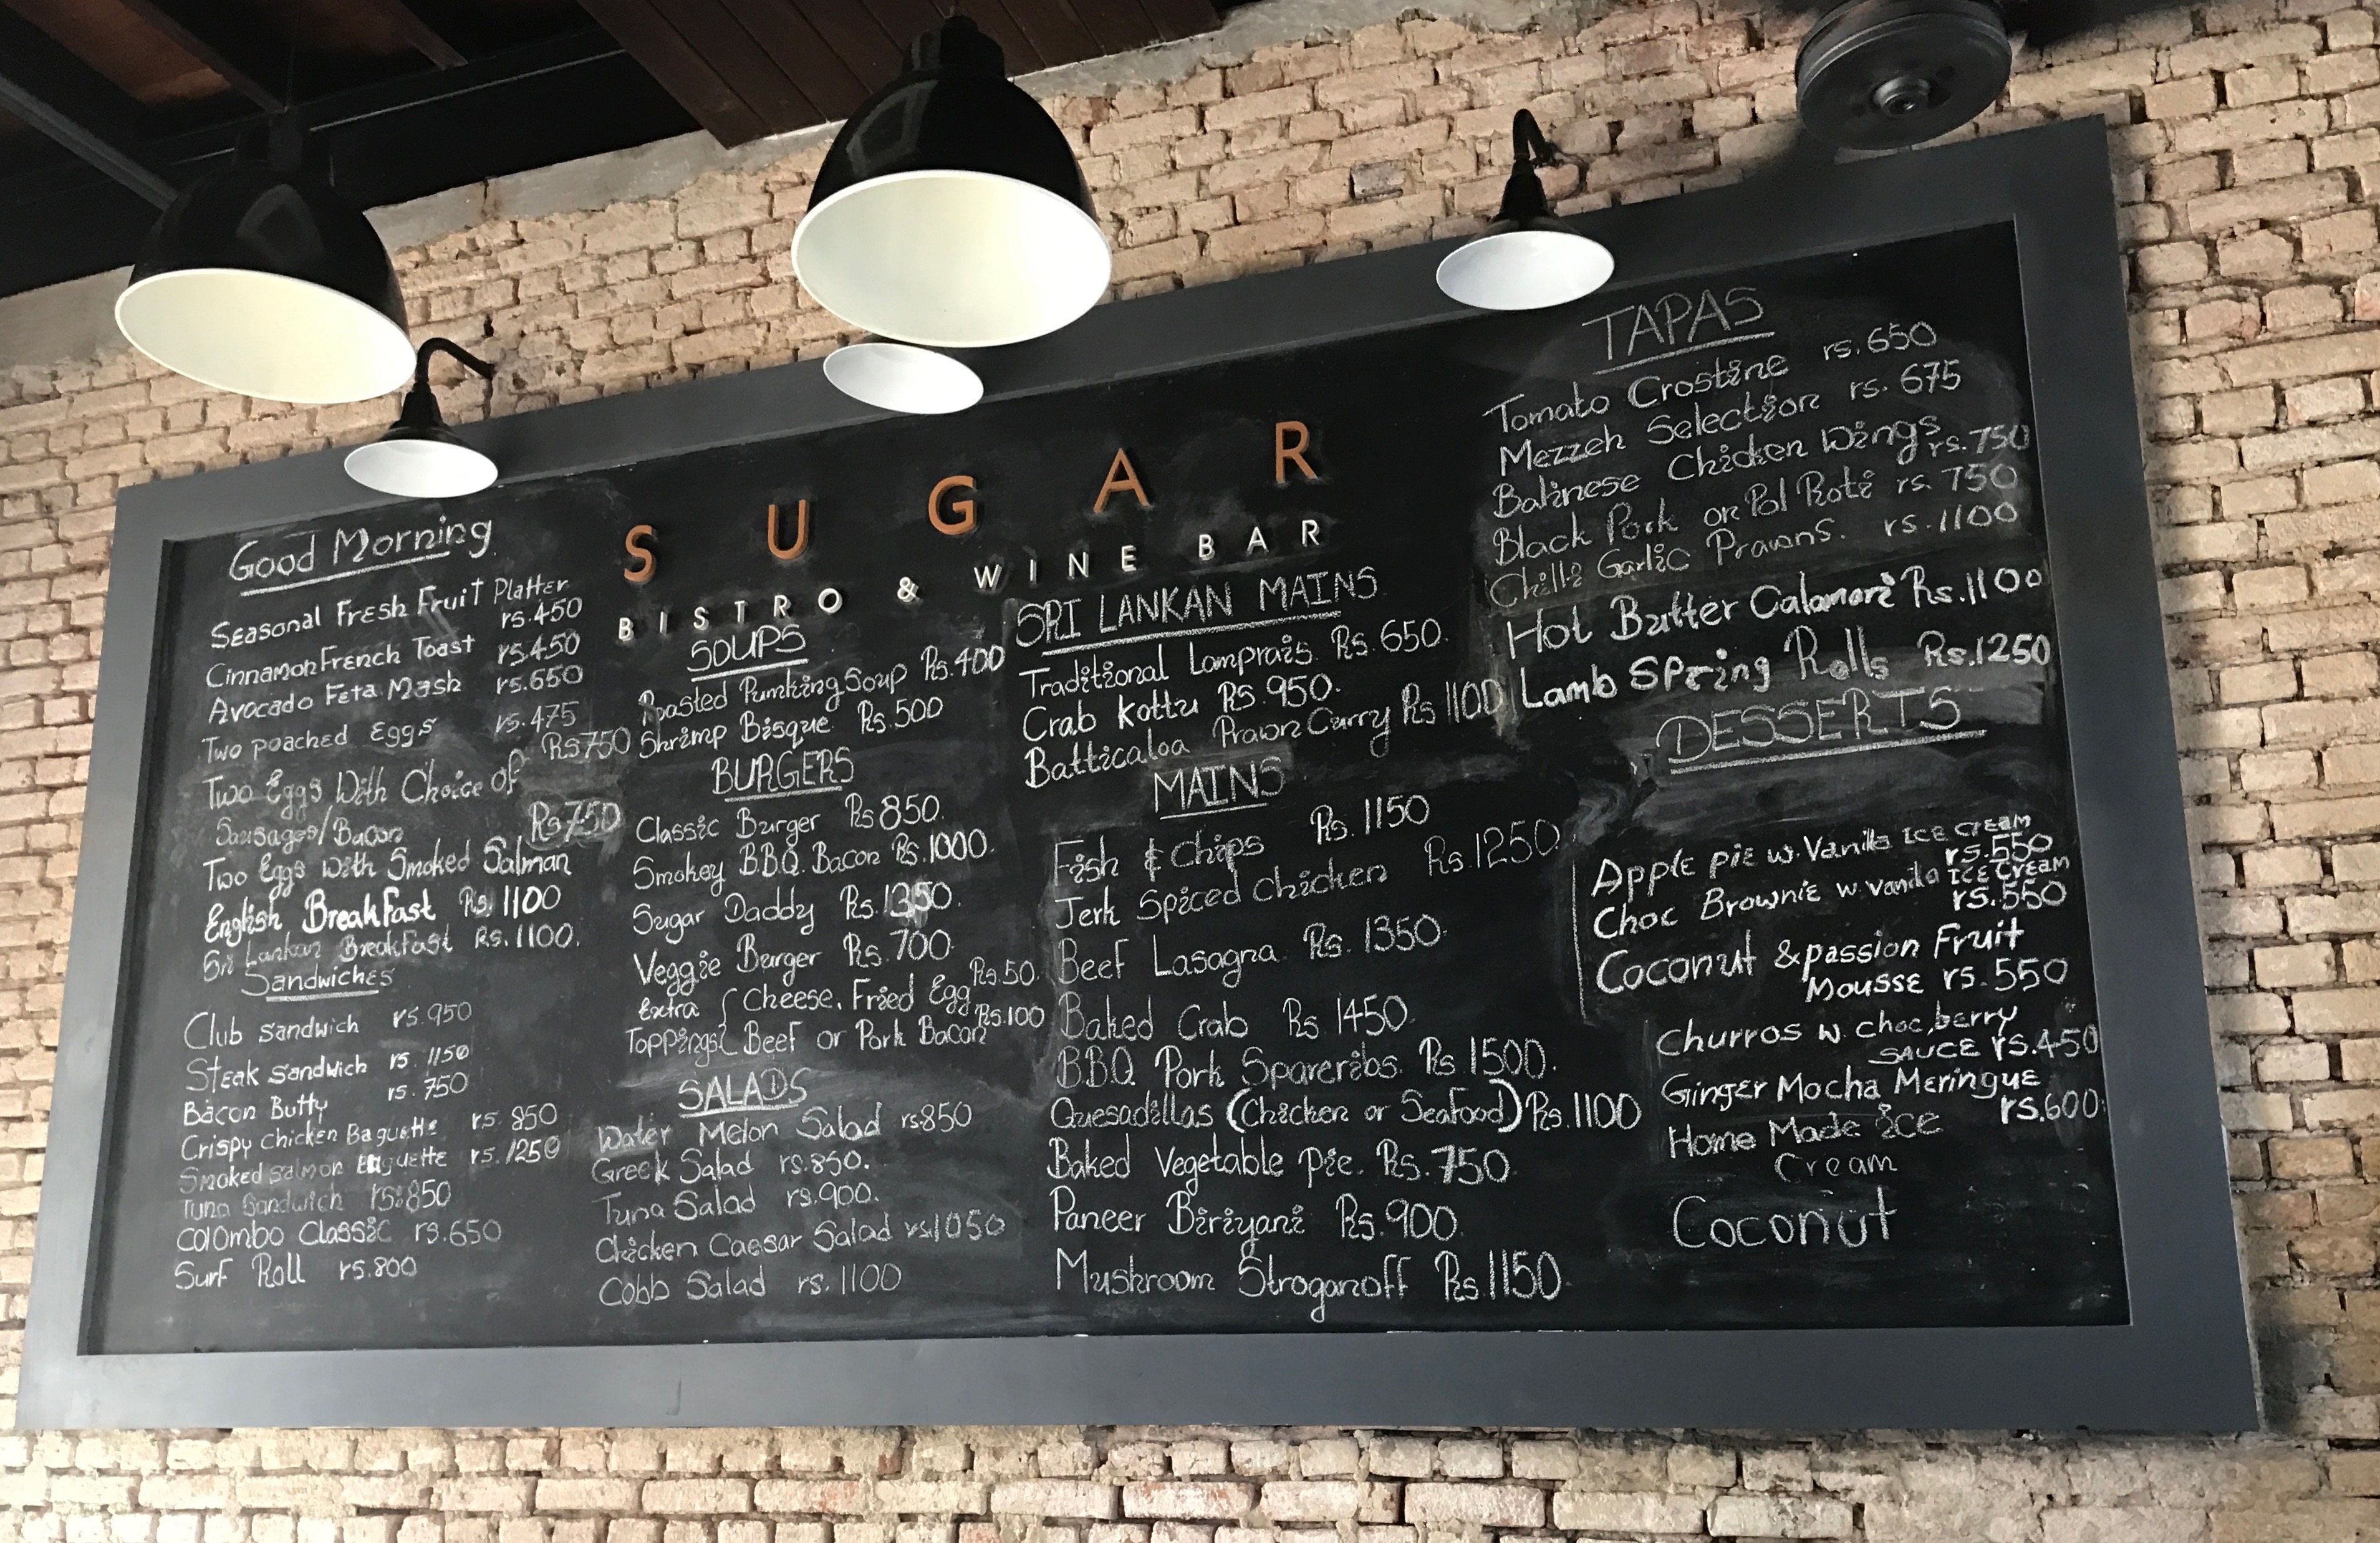 Good Morning
Seasonal Fresh Fruit Platter
rs.450
Cinnamon French Toast rs.450
Avocado Feta Mash rs.650
Two poached Eggs rs.475
Two Eggs With Choice of Rs750
Sausages/Bacon
Rs750
Two Eggs With Smoked Salman
English BreakFast Rs. 1100
Sri Lankan Breakfast Rs.1100.
Sandwiches
Club sandwich rs.950
Steak sandwich rs 1150
Bacon Butty rs.750
Crispy chicken Baguette rs 850
Smoked salmon Baguette rs.1250
Tuna Sandwich rs.850
Colombo Classic rs.650
Surf Roll rs.800
SUGAR
BISTRO & WINE BAR
SOUPS
Roasted Pumking Soup Rs.400
Shrimp Bisque Rs.500
BURGERS
Classic Burger Rs 850.
Smokey B.B.Q. Bacon Rs.1000.
Sugar Daddy Rs.1350.
Veggie Burger Rs.700.
Extra { Cheese, Fried Egg Rs.50.
Toppings { Beef or Pork Bacon Rs.100
SALADS
Water Melon Salad rs850
Greek Salad rs.850.
Tuna Salad rs.900.
Chicken Caesar Salad rs.1050
Cobb Salad rs.1100
SRI LANKAN MAINS
Traditional Lamprais Rs.650.
Crab Kottu Rs.950.
Batticaloa Prawn Curry Rs 1100
MAINS
Fish & Chips Rs.1150
Jerk Spiced Chicken Rs.1250.
Beef Lasagna Rs. 1350.
Baked Crab Rs 1450.
B.B.Q Pork Spareribs. Rs 1500.
Quesadillas (Chicken or Seafood) Rs.1100
Baked Vegetable Pie. Rs.750.
Paneer Biriyani Rs.900.
Mushroom Stroganoff Rs.1150.
TAPAS
Tomato Crostine rs.650
Mezzeh Selection rs. 675
Balinese Chicken Wings rs.750
Black Pork on Pol Roti rs. 750
Chilli Garlic Prawns. rs.1100
Hot Butter Calamari Rs.1100
Lamb Spring Rolls Rs.1250
DESSERTS
Apple pie w. Vanilla Ice Cream
rs.550
Choc Brownie w. vanilla Ice Cream
rs.550
Coconut & passion Fruit
Mousse rs.550
Churros w. choc, berry
SAUCE rs.450
Ginger Mocha Meringue
rs.600.
Home Made ice
Cream
Coconut